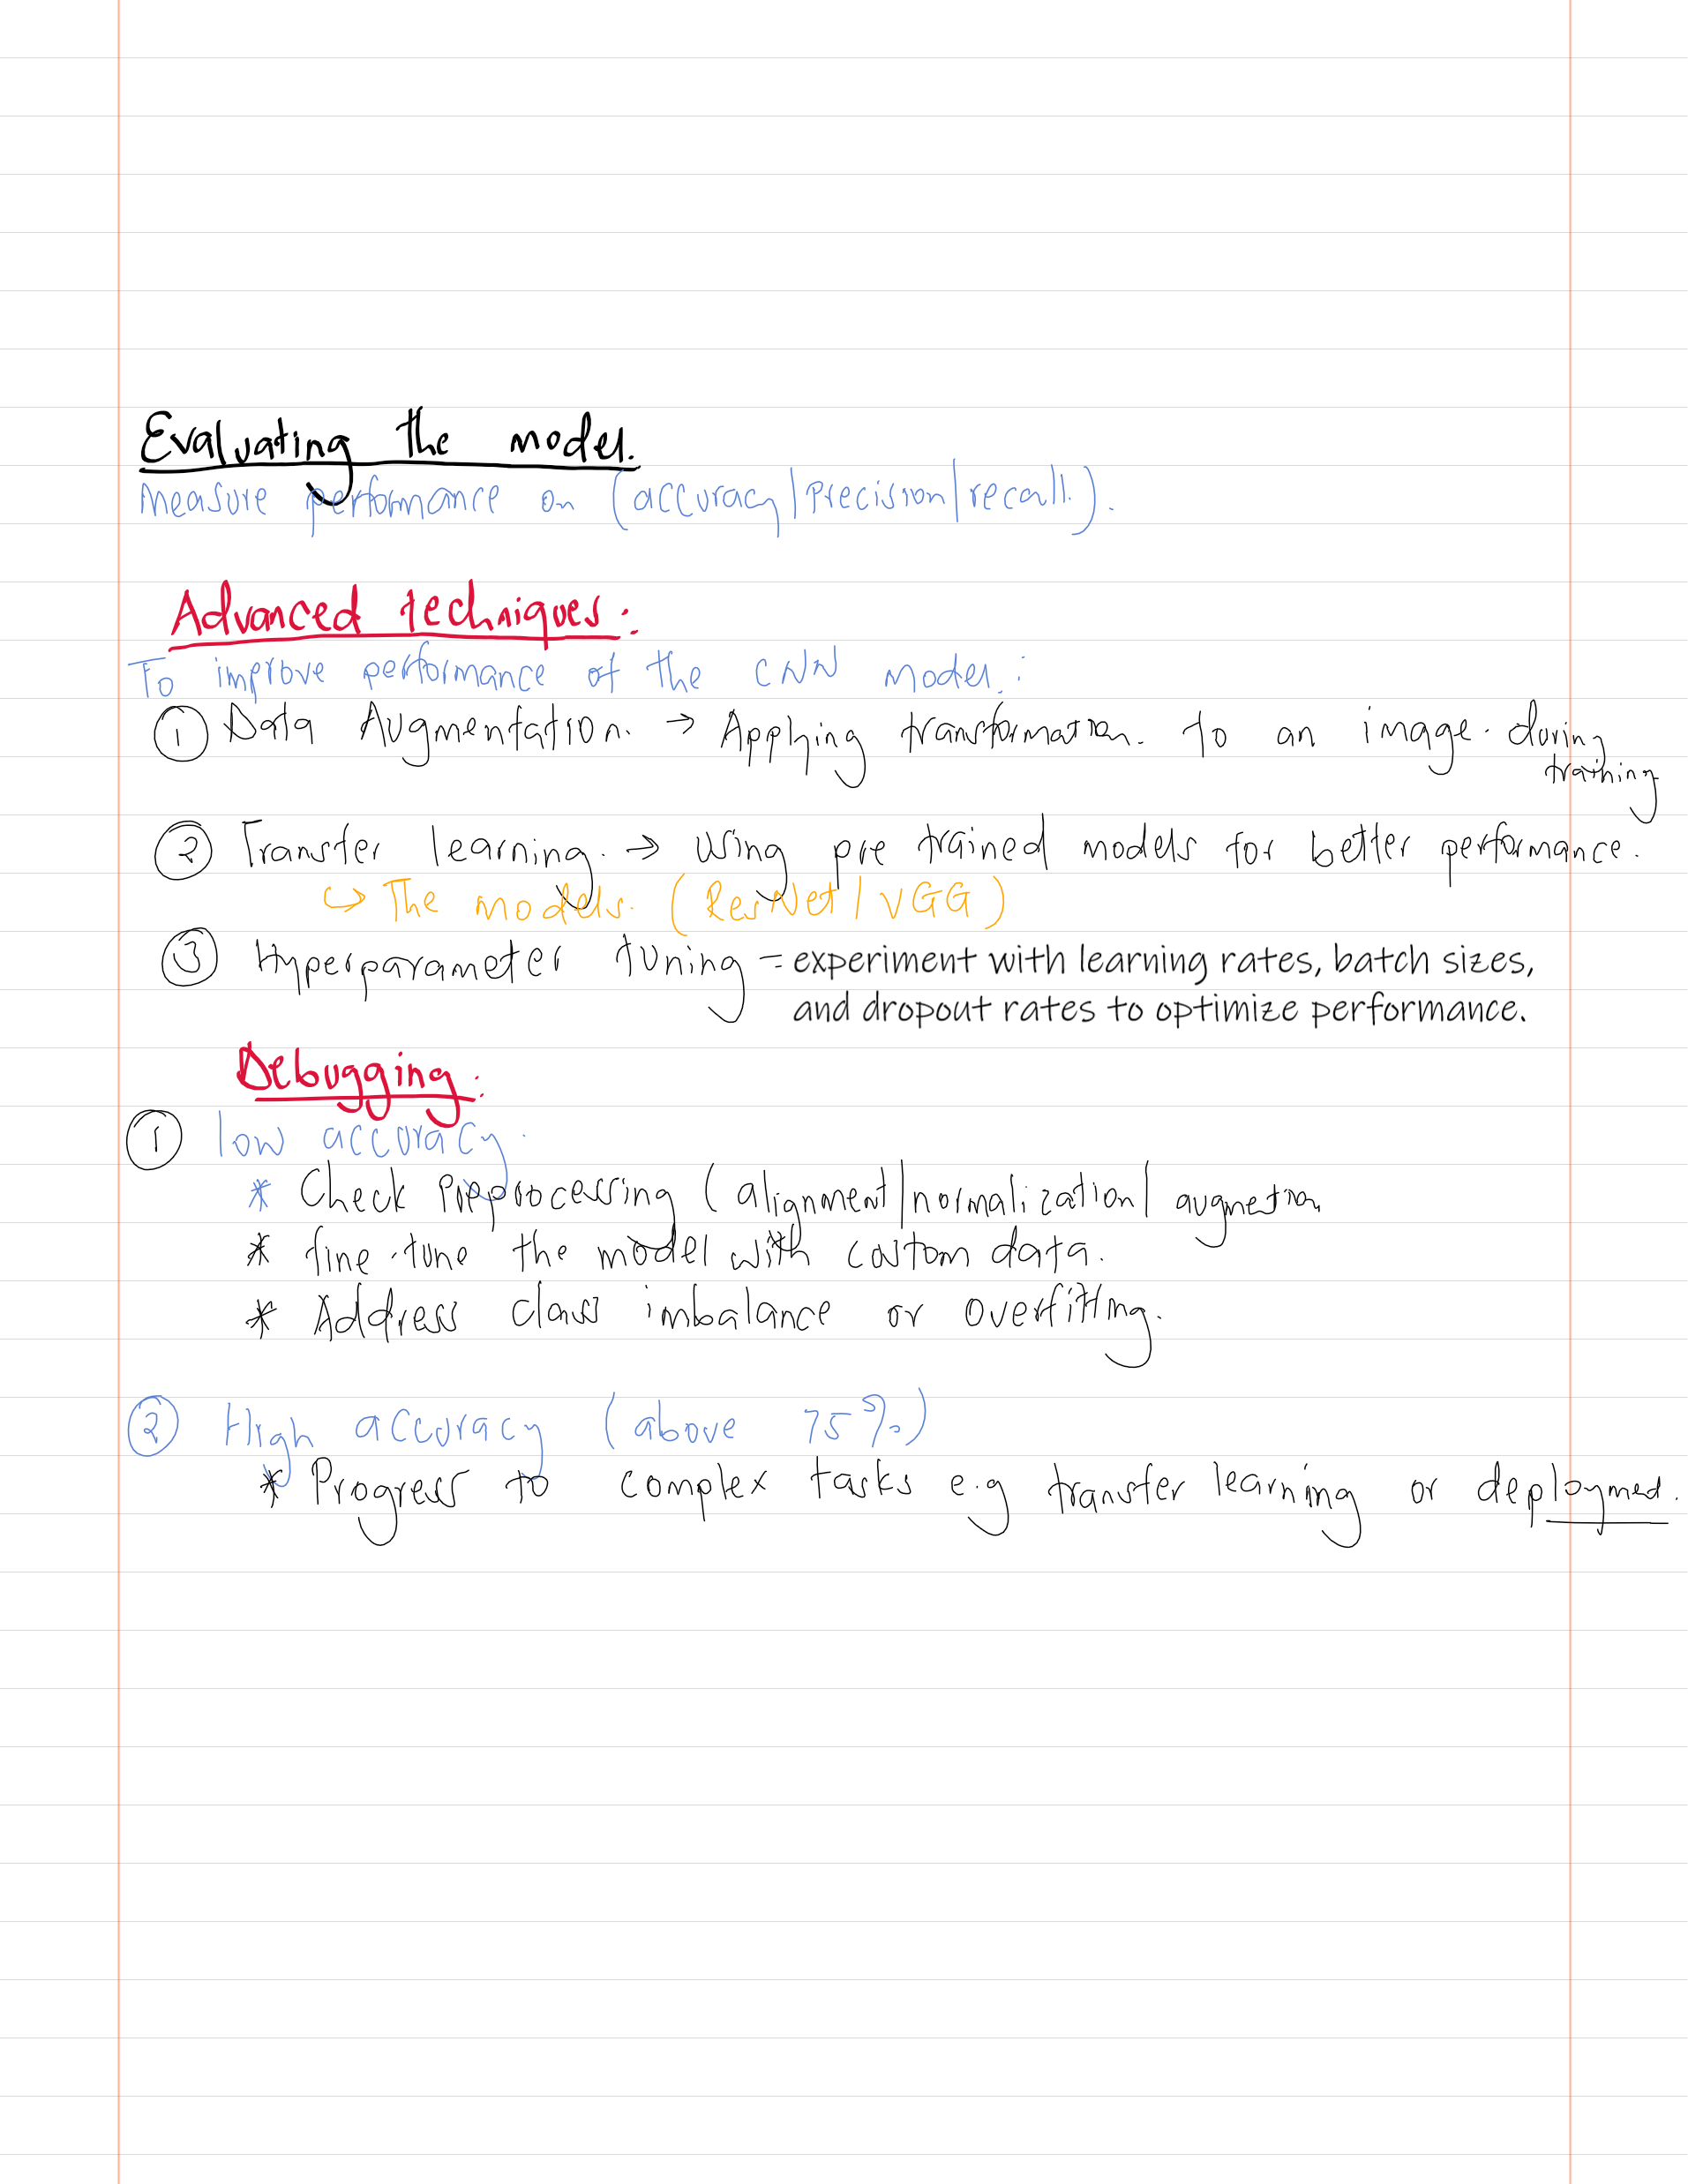 Evaluating the model.
Measure performance on (accuracy|Precision|recall.).
Advanced techniques:
To improve performance of the CNN model:
① Data Augmentation. → Applying transformation. to an image. during
training
② Transfer learning. → Using pre trained models for better performance.
↪ The models. (ResNet | VGG)
③ Hyperparameter tuning = experiment with learning rates, batch sizes,
and dropout rates to optimize performance.
Debugging:
① low accuracy.
* Check Preprocessing (alignment|normalization| augmetion
* fine-tune the model with custom data.
* Address class imbalance or overfitting.
② High accuracy (above 75%)
* Progress to complex tasks e.g transfer learning or deploymed.